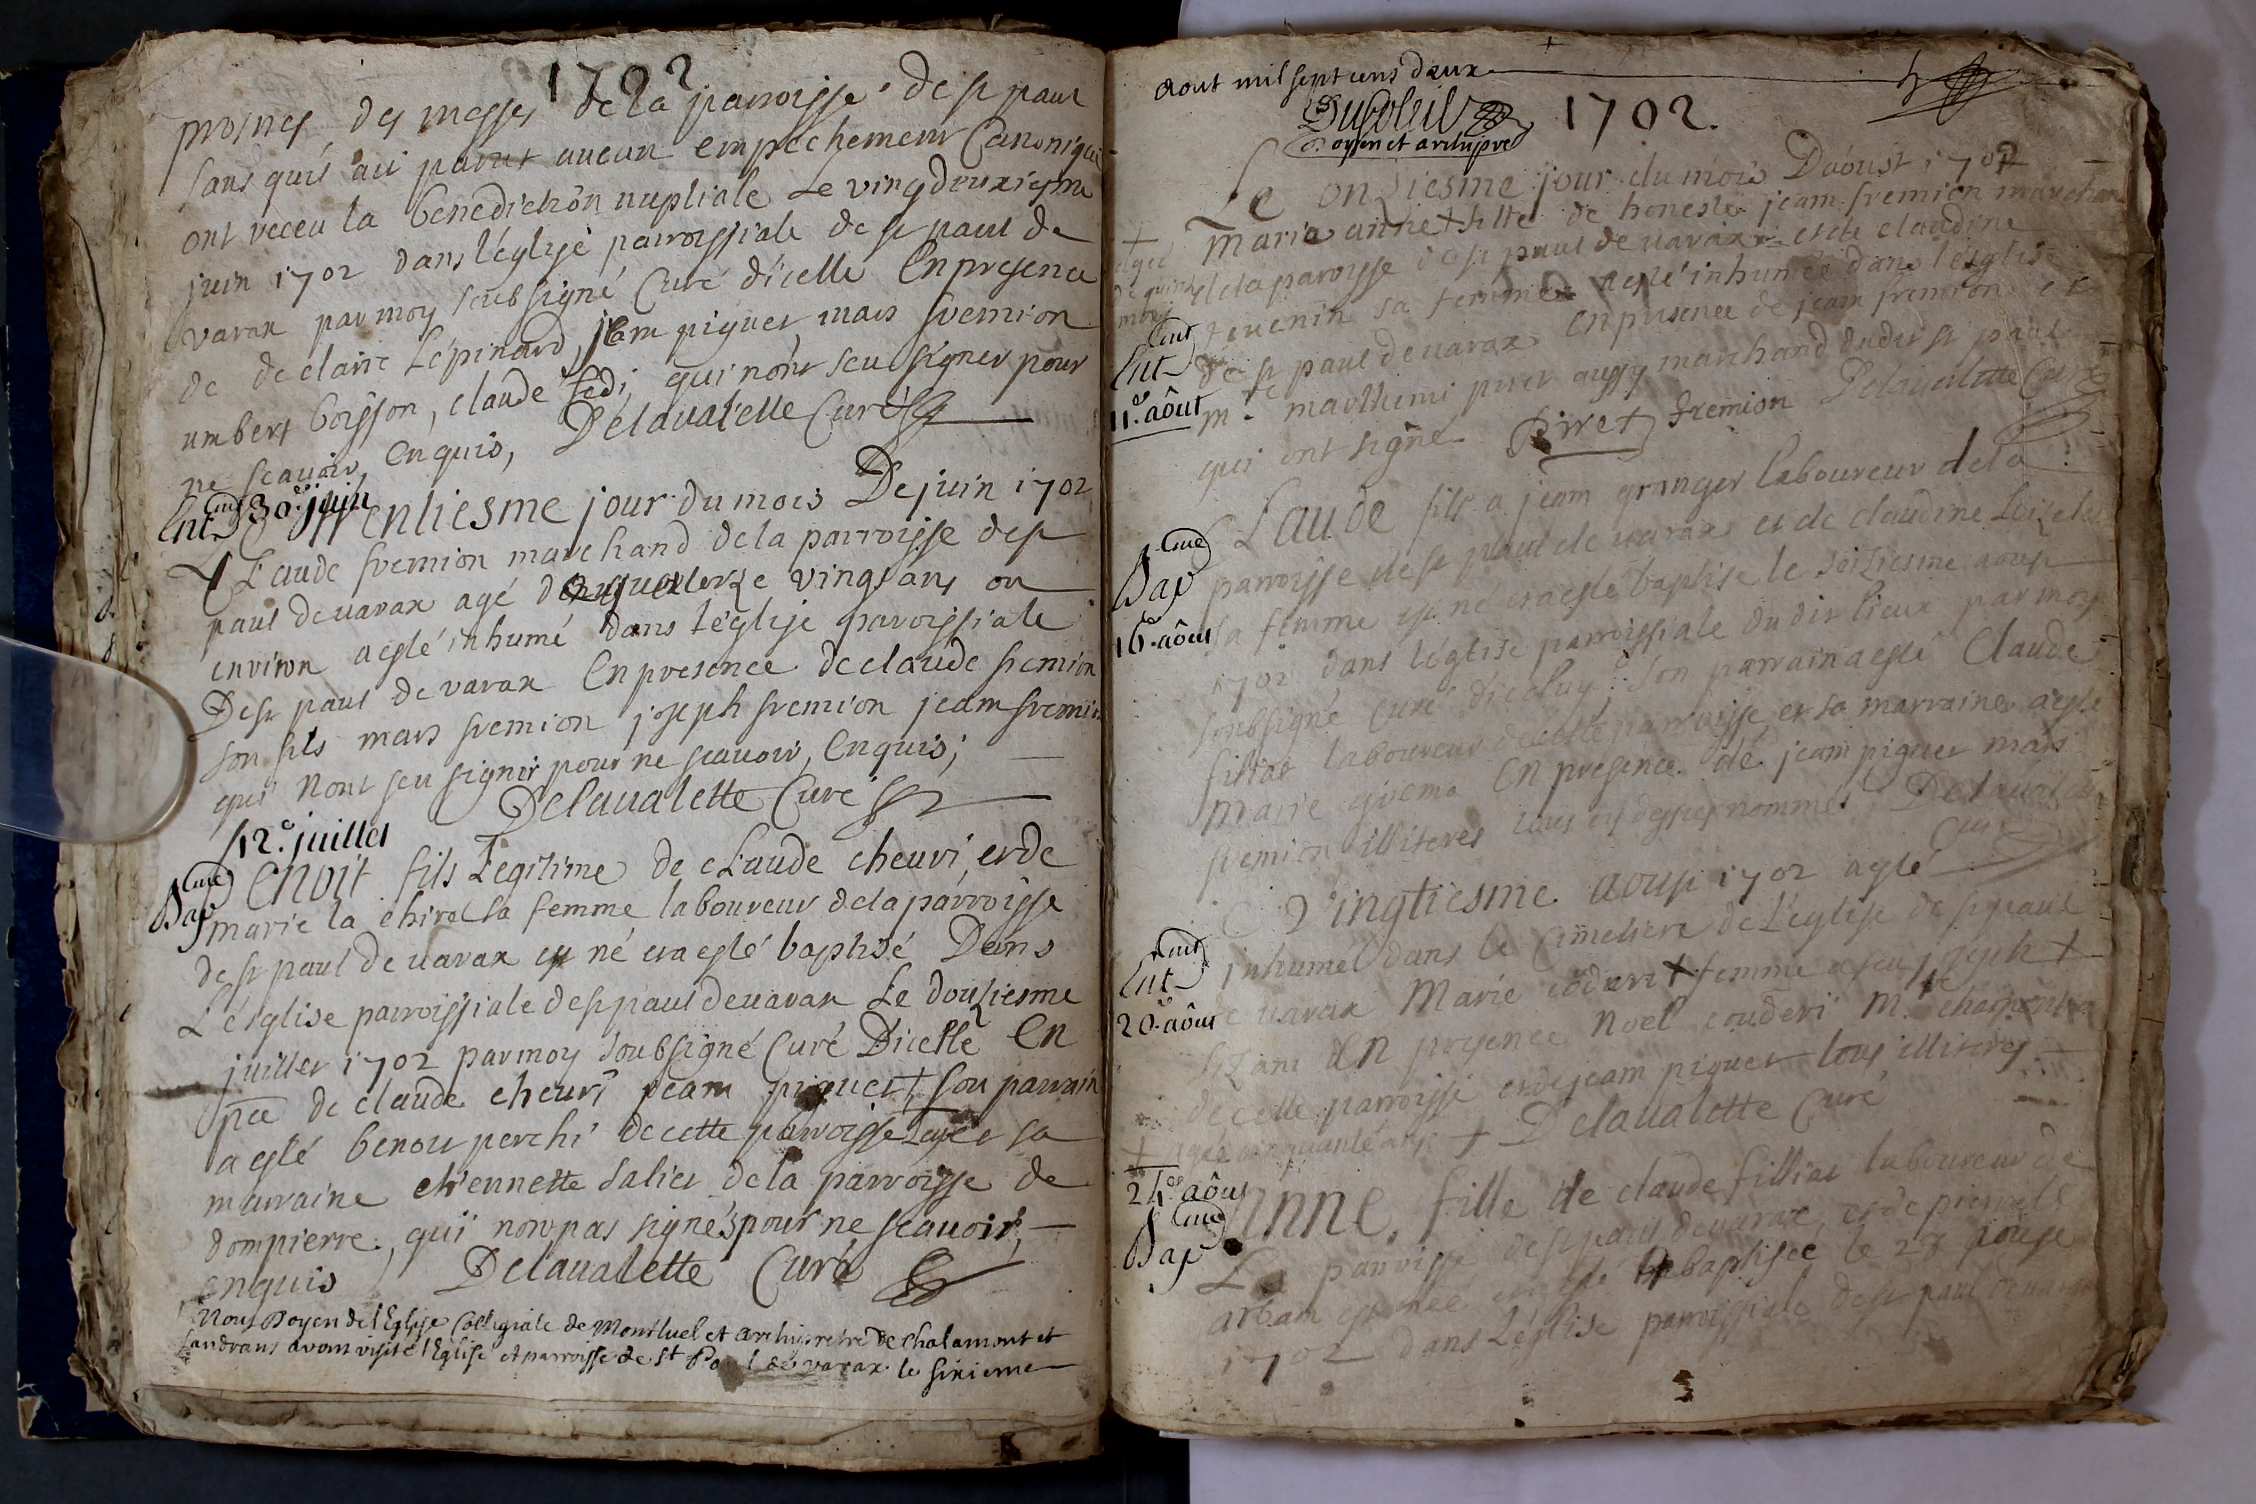 1702
prosnes des messes de la parroisse de st paul
sans quis aii parut aucun empechement Canonique
ont receu la benediction nupliale Le vingdeuxiesme
juin 1702 dans l'église parroissiale de st paul de
varax par moy soubsigné Curé d'icelle En presence
de declaire Lépinard, jeam piquet mars fremion
umbert boisson, claude fedi, qui nont seu signer pour
ne scavoir, Enquis, Delavalette Curé
Ent 30e juin
Trentiesme jour du mois De juin 1702
Claude fremion marchand dela parroisse de st
paul de varax agé de quaterze vingt ans ou
environ a esté inhumé dans l'église parroissiale
De st paul de varax En presence de claude fremion
son fils mars fremion joseph fremion jeam fremion
qui Nont seu signer pour ne scavoir, Enquis;
Delavalette Curé
12e juillet
Bap
Benoit fils Legitime de cLaude cheuri, et de
marie la chirel sa femme laboureur dela parroisse
de st paul de varax est né et a esté baptisé Dans
L'église parroissiale de st paul de varax Le douziesme
juillet 1702 par moy soubsigné Curé Dicelle En
pce de claude cheuri jeam piquet + son parrain
a esté benoit perchi de cette parroisse et sa
marraine etiennette salier dela parroisse de
dompierre, qui nont pas signés pour ne scavoir,
enquis Delavalette Curé
Nous Doyen de l'Eglise Collegiale de Montluel et archipretre de Chalamont et
Sandrans avons visité l'Eglise et parroisse de St Paul de varax le sixieme
aout mil sept cens deux
Dusoleil
Doyen et archipre
1702.
Le onziesme jour du mois Daoust 1702
Marie anne + fille de honeste jeam fremion marchan
+ agée de quinze mois
de la parroisse de st paul de varax et de claudine
tevenin sa femme a esté inhumée dans l'église
Ent
de st paul de varax En presence de jeam fremion et
11e août
me marthimi piret aussy marchand dudit st paul
qui ont signé Piret fremion Delavalette Curé
Claude fils a jeam granger laboureur dela
Bap
parroisse de st paul de varax et de claudine
16e août
sa femme est né et a esté baptise le seiziesme aoust
1702 dans l'église parroissiale dudit lieux par moy
soubsigné curé diceluy, son parrain a esté Claude
filliat laboureur de cette parroisse et sa marraine a esté
marie En presence de jeam piquet mars
fremion illiteres tous cy dessus nommés Delavalette
Curé
Vingtiesme aoust 1702 a esté
Ent
inhumée dans le Cimetiere de L'eglise de st paul
20e août
de varax Marie coduri + femme a feu joseph
En presence Noel couderi me charpentier
de cette parroisse et de jeam piquet tous illiteres
+ agée cinquante ans + Delavalette Curé
28e août
Bap
Anne, fille de claude filliat laboureur de
La parroisse de st paul de varax, et de pierrette
arbam est née et a esté baptisee le 28 aouse
1702 dans L'église parroissiale de st paul de varax